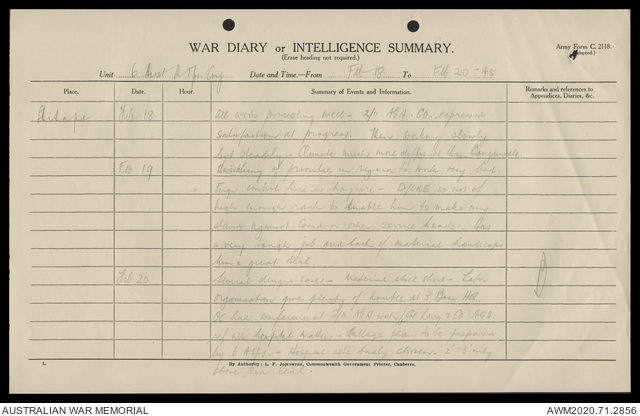 WAR DIARY or INTELLIGENCE SUMMARY.
(Erase heading not required.)
Army Form C. 2118.
(Adapted.)
Unit 6 Aust Date and Time.—From Feb 18 To Feb 20 - 45
Place. Date. Hour. Summary of Events and Information. Remarks and references to Appendices, Diaries, &c.
Aitape Feb 18. All works proceeding well - 2/0 AGH CO. expressed
satisfaction at progress. Men working slowly
but steadily - Climate much more difficult than
Feb 19 of priorities in regard to work very bad.
control here is haywire - D/CRE is not of
high enough rank to enable him to make any
stand against Comd or other service heads. Has
a very tough job and lack of material handicaps
him a great deal.
Feb 20 Several dengue cases - Material still short - Labor
organisation gives plenty of trouble at 3 Base HQ.
conference at AGH
all hospital matters - plan to be prepared
by 6 - Hospital site badly chosen 2'-3' only
above sea level.
L. By Authority: L. F. Johnston, Commonwealth Government Printer, Canberra.
AUSTRALIAN WAR MEMORIAL AWM2020.71.2856